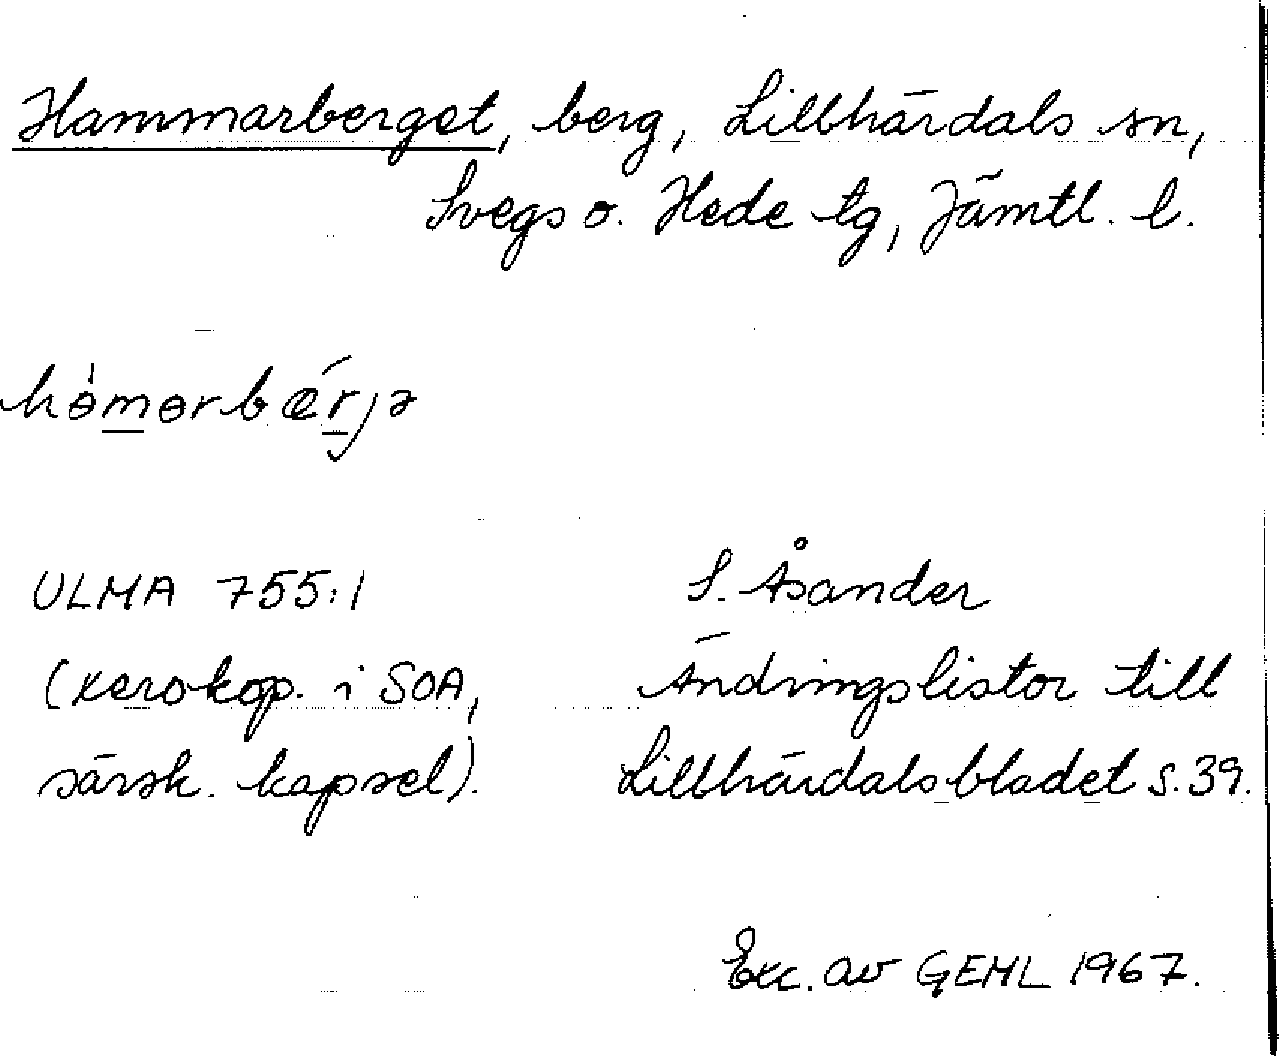 Hammarberget, berg, Lillhärdals sn,
Svegs o. Hede tg, Jämtl. l.
hòmɵrbǽrjə
ULMA 755:1
S. Åsander
(xerokop. i SOA,
Ändringslistor till
särsk. kapsel).
Lillhärdalsbladet s. 39.
Exc. av GEHL 1967.